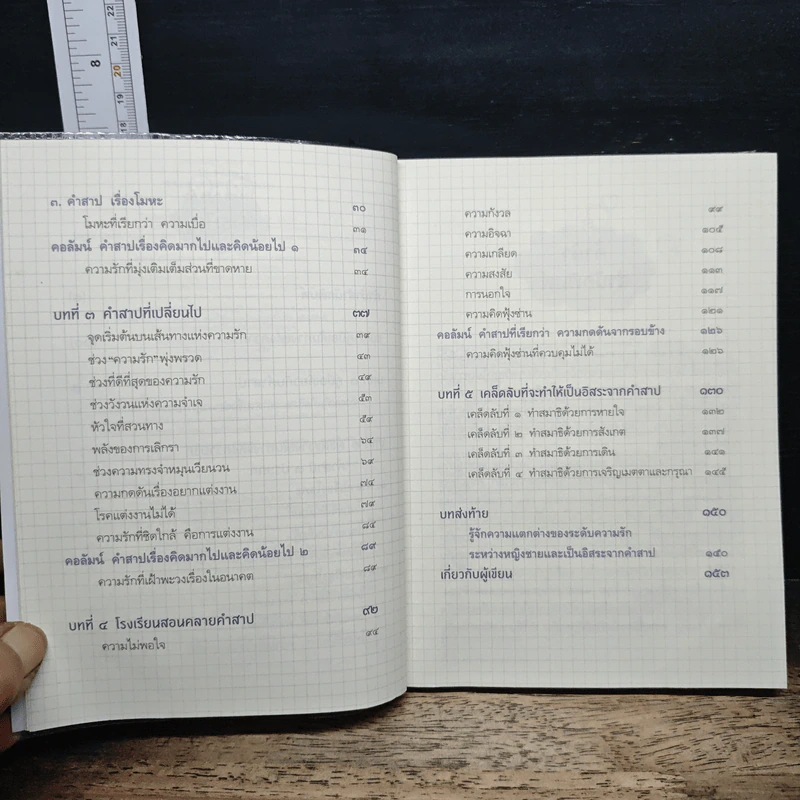 8
22
21
20
19
18
๓. คำสาป เรื่องโมหะ ๓๐
โมหะที่เรียกว่า ความเบื่อ ๓๑
คอลัมน์ คำสาปเรื่องคิดมากไปและคิดน้อยไป ๑ ๓๔
ความรักที่มุ่งเติมเต็มส่วนที่ขาดหาย ๓๔
บทที่ ๓ คำสาปที่เปลี่ยนไป ๓๗
จุดเริ่มต้นบนเส้นทางแห่งความรัก ๓๙
ช่วง “ความรัก” พุ่งพรวด ๔๓
ช่วงที่ดีที่สุดของความรัก ๔๙
ช่วงวังวนแห่งความจำเจ ๕๓
หัวใจที่สวนทาง ๕๙
พลังของการเลิกรา ๖๔
ช่วงความทรงจำหมุนเวียนวน ๖๙
ความกดดันเรื่องอยากแต่งงาน ๗๔
โรคแต่งงานไม่ได้ ๗๙
ความรักที่ชิดใกล้ คือการแต่งงาน ๘๔
คอลัมน์ คำสาปเรื่องคิดมากไปและคิดน้อยไป ๒ ๘๙
ความรักที่เฝ้าพะวงเรื่องในอนาคต ๘๙
บทที่ ๔ โรงเรียนสอนคลายคำสาป ๙๒
ความไม่พอใจ ๙๔
ความกังวล ๙๙
ความอิจฉา ๑๐๕
ความเกลียด ๑๐๘
ความสงสัย ๑๑๓
การนอกใจ ๑๑๗
ความคิดฟุ้งซ่าน ๑๒๑
คอลัมน์ คำสาปที่เรียกว่า ความกดดันจากรอบข้าง ๑๒๖
ความคิดฟุ้งซ่านที่ควบคุมไม่ได้ ๑๒๖
บทที่ ๕ เคล็ดลับที่จะทำให้เป็นอิสระจากคำสาป ๑๓๐
เคล็ดลับที่ ๑ ทำสมาธิด้วยการหายใจ ๑๓๒
เคล็ดลับที่ ๒ ทำสมาธิด้วยการสังเกต ๑๓๗
เคล็ดลับที่ ๓ ทำสมาธิด้วยการเดิน ๑๔๑
เคล็ดลับที่ ๔ ทำสมาธิด้วยการเจริญเมตตาและกรุณา ๑๔๕
บทส่งท้าย ๑๕๐
รู้จักความแตกต่างของระดับความรัก
ระหว่างหญิงชายและเป็นอิสระจากคำสาป ๑๕๐
เกี่ยวกับผู้เขียน ๑๕๓